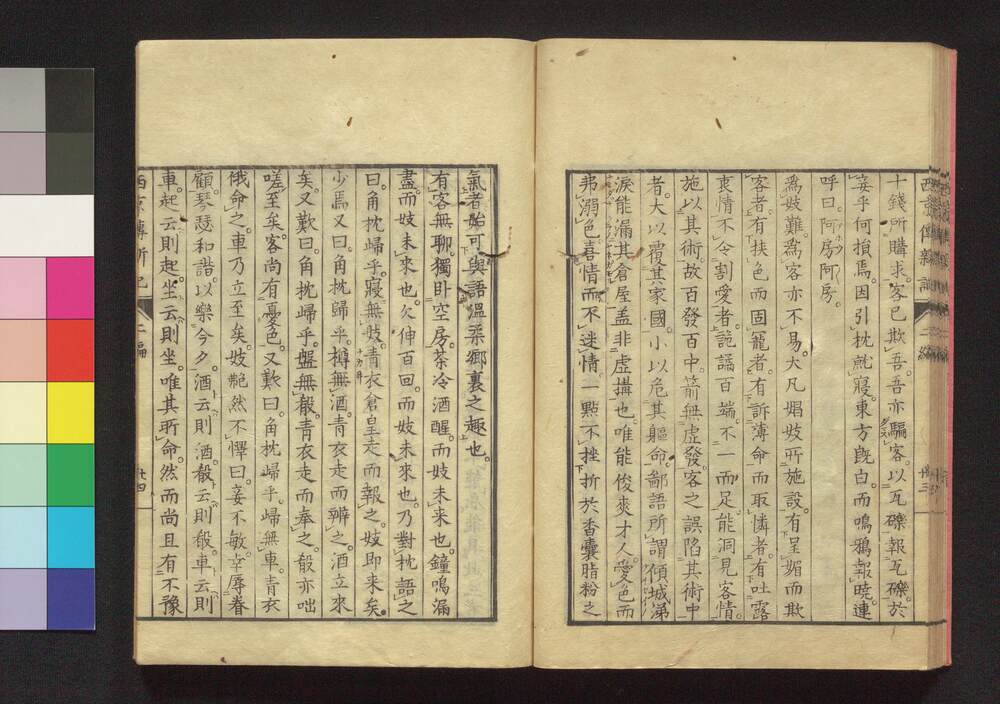 十錢所購求。客已欺吾。吾亦騙客。以瓦礫報瓦礫。於
妾乎何損焉。因引枕就寢。東方既白。而鳴鴉報曉。連
呼曰阿房阿房。
爲妓難。爲客亦不易。大凡娼妓所施設。有呈媚而欺
客者。有扶色而固寵者。有訴薄命而取憐者。有吐露
衷情不令割愛者。詭譎百端。不一而足。能洞見客情。
施以其術。故百發百中。箭無虛發。客之誤陷其術中
者。大以覆其家國。小以危其軀命。鄙語所謂傾城涕
淚能漏其倉屋。盖非虛搆也。唯能俊爽才人。愛色而
弗溺色。喜情而不迷情。一點不挫折於香囊脂粉之
氣者。始可與語溫柔鄉裏之趣也。
有客無聊。獨臥空房。茶冷酒醒。而妓未來也。鐘鳴漏
盡。而妓未來也。欠伸百回。而妓未來也。乃對枕語之
曰。角枕歸乎。寢無妓。青衣倉皇走而報之。妓即來矣。
少焉又曰。角枕歸乎。樽無酒。青衣走而辨之。酒立來
矣。又歎曰。角枕歸乎。盤無殽。青衣走而奉之。殽亦咄
嗟至矣。客尚有憂色。又歎曰。角枕歸乎。歸無車。青衣
俄命之。車乃立至矣。妓艴然不懌曰。妾不敏。幸辱眷
顧。琴瑟和諧。以樂今夕。酒云則酒。殽云則殽。車云則
車。起云則起。坐云則坐。唯其所命。然而尚且有不豫
西京傳新記
二編
廿四